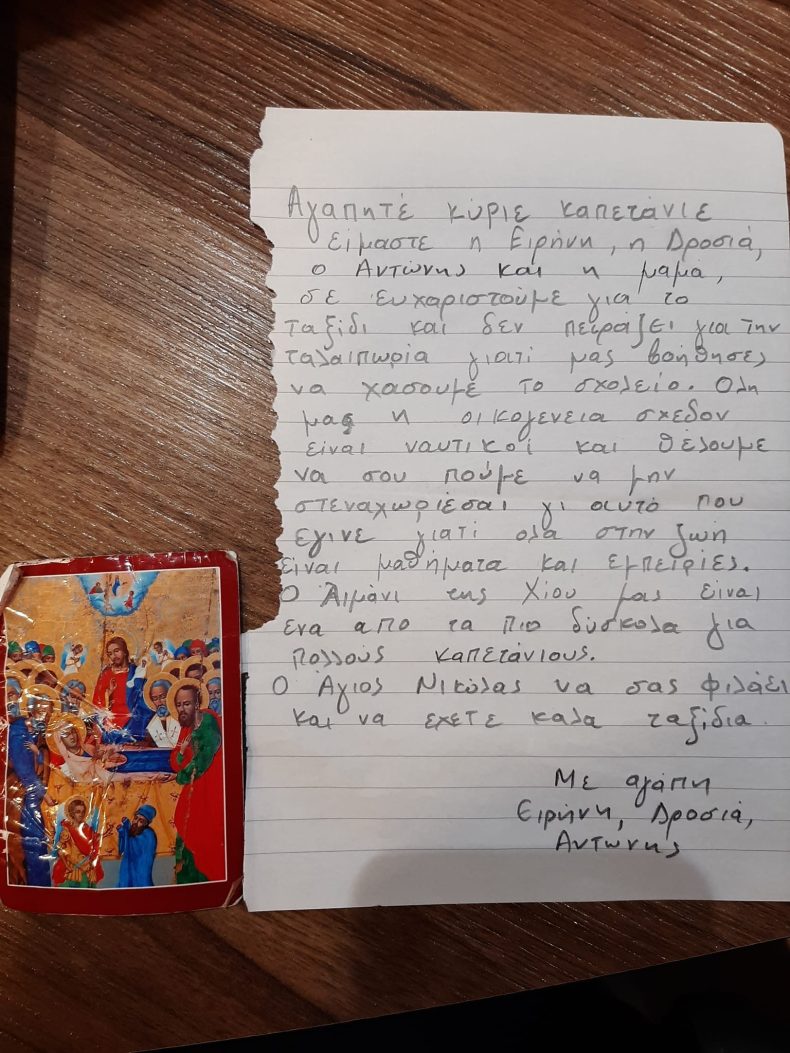 Αγαπητέ κύριε καπετάνιε
είμαστε η Ειρήνη, η Δροσιά,
ο Αντώνης και η μαμά,
σε ευχαριστούμε για το
ταξίδι και δεν πειράζει για την
ταλαιπωρία γιατί μας βοήθησες
να χάσουμε το σχολείο. Ολη
μας η οικογενεια σχεδον
είναι ναυτικοί και θέλουμε
να σου πούμε να μην
στεναχωριέσαι γι αυτό που
εγινε γιατί ολα στην ζωή
είναι μαθήματα και εμπειρίες.
Ο Λιμάνι της Χίου μας είναι
ενα απο τα πιο δύσκολα για
πολλούς καπετάνιους.
Ο Άγιος Νικόλας να σας φιλάει
και να εχετε καλα ταξίδια.
Με αγάπη
Ειρήνη, Δροσιά,
Αντώνης